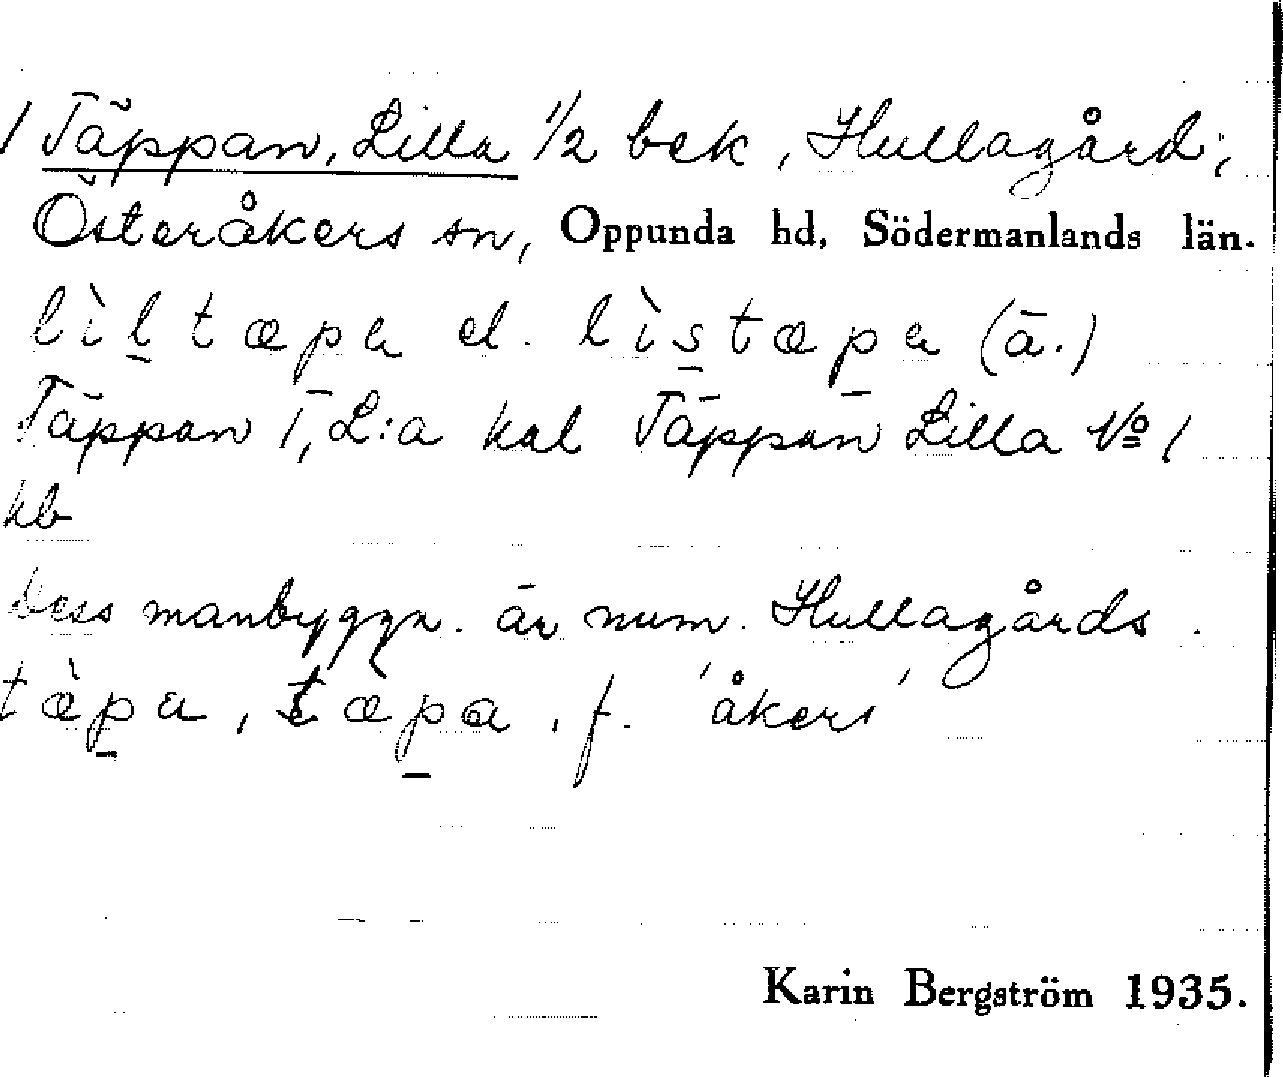 / Täppan, Lilla 1/2 bek, Hullagård;
Österåkers sn, Oppunda hd, Södermanlands län.
lìl̠tæpa el. lìs̠tæpa (ä.)
Täppan 1, L:a kal Täppan Lilla No 1
kb
Dess manbyggn. är num. Hullagårds.
tæ̀p̠a, tæp̠a, f. 'åker'
Karin Bergström 1935.